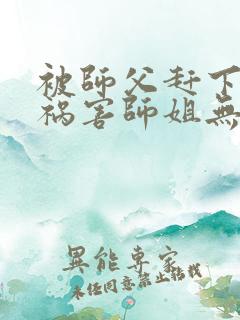 被師父赶下
祸害師姐無
異能專家
未任同意禁止转载